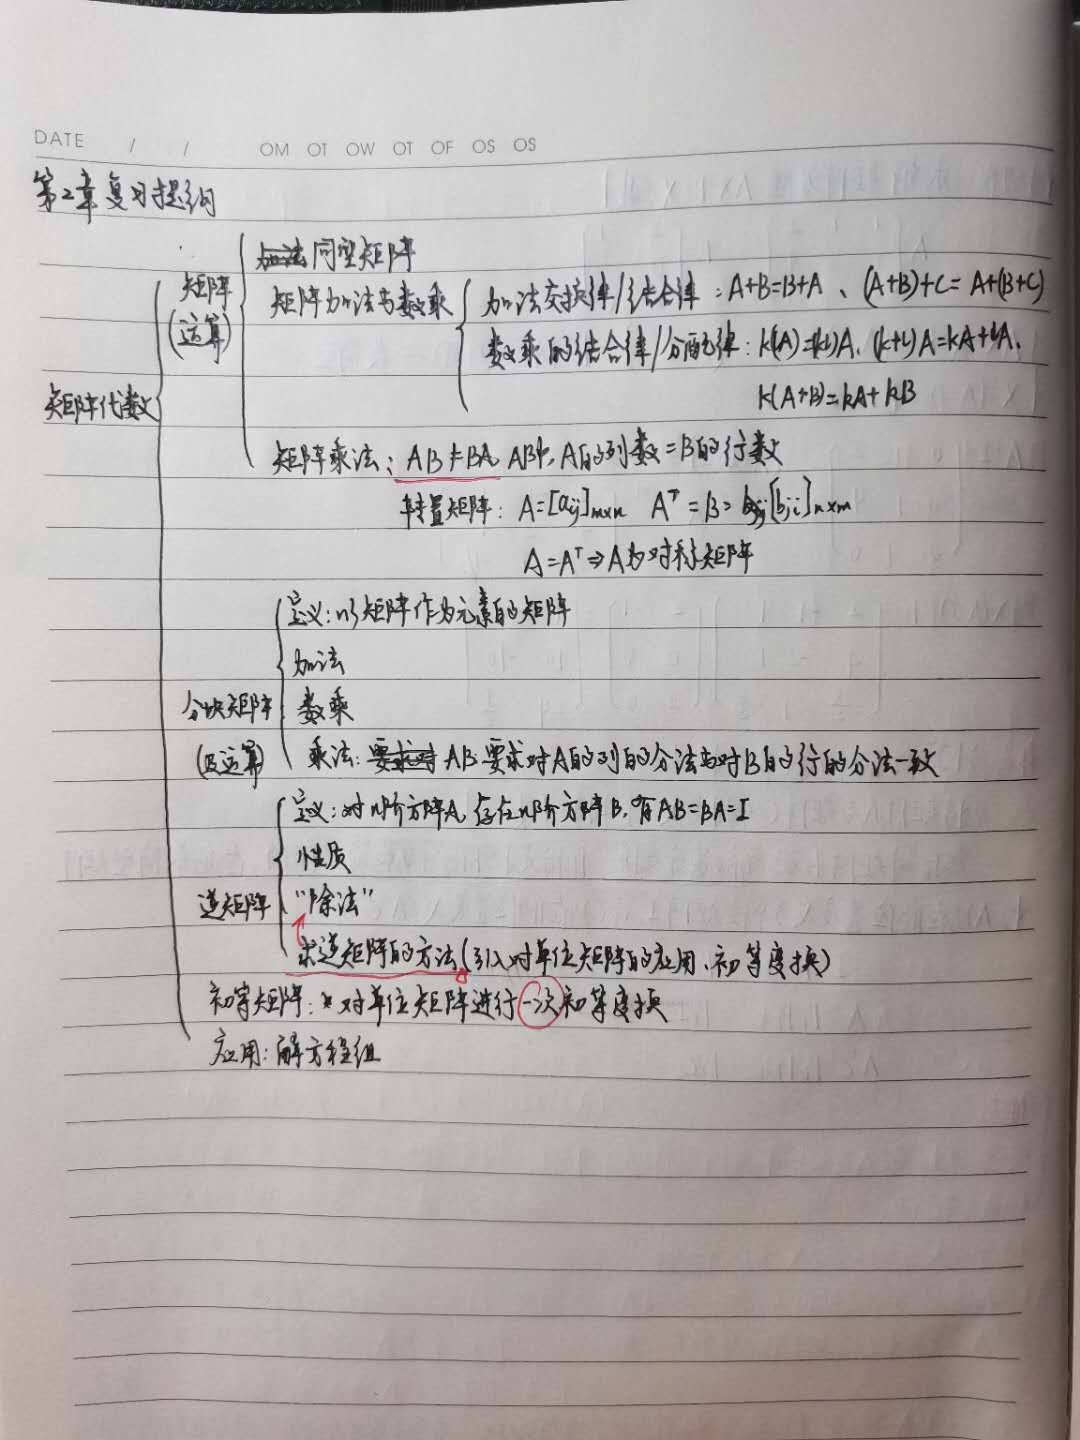 DATE / / OM OT OW OT OF OS OS
第2章复习提纲
同型矩阵
矩阵
(运算)
矩阵加法与数乘
加法交换律/结合律：A+B=B+A、(A+B)+C=A+(B+C)
数乘的结合律/分配律：k(lA)=(kl)A、(k+l)A=kA+lA、
k(A+B)=kA+kB
矩阵代数
矩阵乘法：AB≠BA, AB中，A的列数=B的行数
转置矩阵：A=[aij]m×n Aᵀ=B= [bji]n×m
A=Aᵀ⇒A为对称矩阵
定义：以矩阵作为元素的矩阵
加法
分块矩阵
数乘
(及运算)
乘法：AB要求对A的列的分法与对B的行的分法一致
定义：对n阶方阵A，存在n阶方阵B，有AB=BA=I
性质
逆矩阵
"除法"
求逆矩阵的方法(引入对单位矩阵的应用、初等变换)
初等矩阵：对单位矩阵进行一次初等变换
应用：解方程组